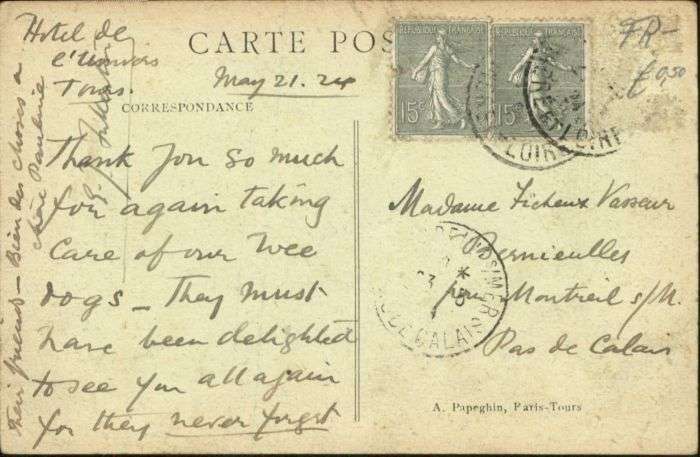 Hotel de
l'Univers
Tours.
CARTE POS
May 21. 24
CORRESPONDANCE
Thank you so much
for again taking
care of our wee
dogs – They must
have been delighted
to see you all again
for they never forget
their friends – Bien des choses a
chère Pauline
REPUBLIQUE FRANÇAISE
15c
REPUBLIQUE FRANÇAISE
15c
ET LOIRE
FR–
£0,50
Madame Ficheux Vasseur
Bernieulles
pres Montreuil s/M.
Pas de Calais
CALAIS
A. Papeghin, Paris-Tours